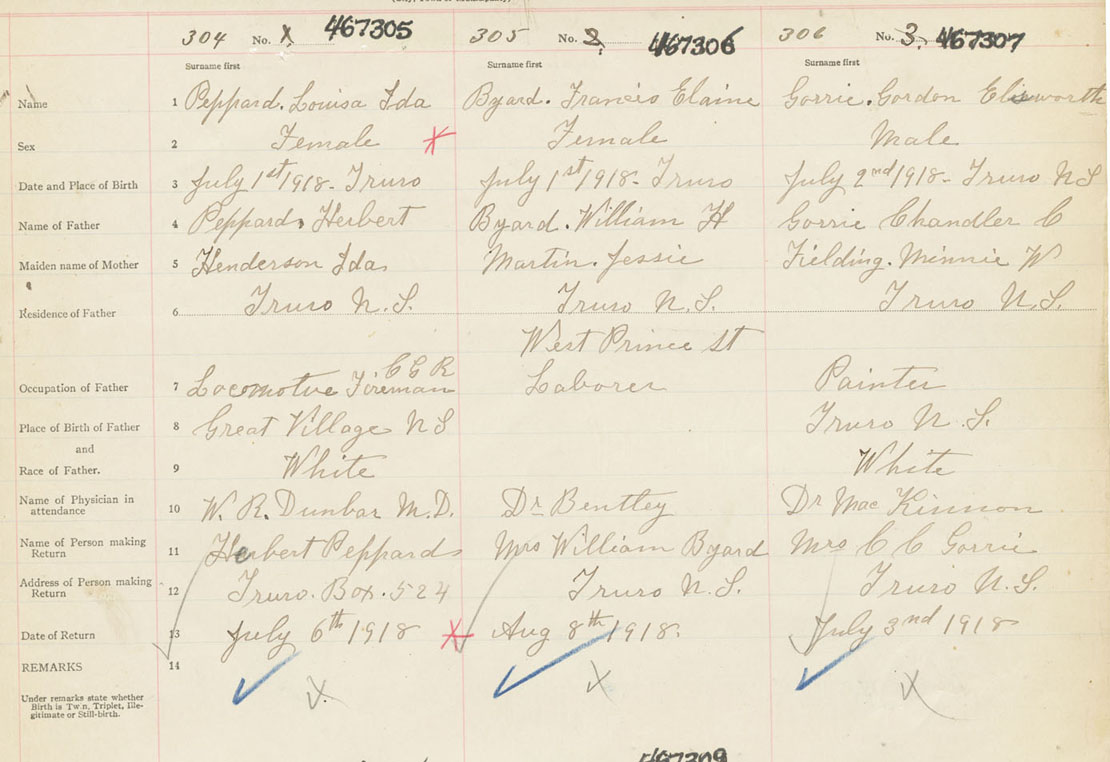 304 No. 1. 467305 305 No. 2. 467306 306 No. 3. 467307
Surname first Surname first Surname first
Name 1 Peppard. Louisa Ida Byard. Francis Elaine Gorrie. Gordon Elisworth
Sex 2 Female X Female Male
Date and Place of Birth 3 July 1st 1918 - Truro July 1st 1918 - Truro July 2nd 1918 - Truro N S
Name of Father 4 Peppard, Herbert Byard. William H Gorrie Chandler C
Maiden name of Mother 5 Henderson Ida Martin. Jessie Fielding. Minnie W
Residence of Father 6 Truro N. S. Truro N. S. Truro N. S.
West Prince St
C G R
Occupation of Father 7 Locomotve Fireman Laborer Painter
Place of Birth of Father 8 Great Village N S Truro N. S.
and
Race of Father. 9 White White
Name of Physician in
attendance 10 W. R. Dunbar M. D. Dr Bentley Dr MacKinnon
Name of Person making
Return 11 Herbert Peppard Mrs William Byard Mrs C C Gorrie
Address of Person making
Return 12 Truro. Box. 524 Truro N. S. Truro N. S.
Date of Return 13 July 6th 1918 X Aug 8th 1918. July 3rd 1918
REMARKS 14
Under remarks state whether
Birth is Twin, Triplet, Ille-
gitimate or Still-birth.
467309